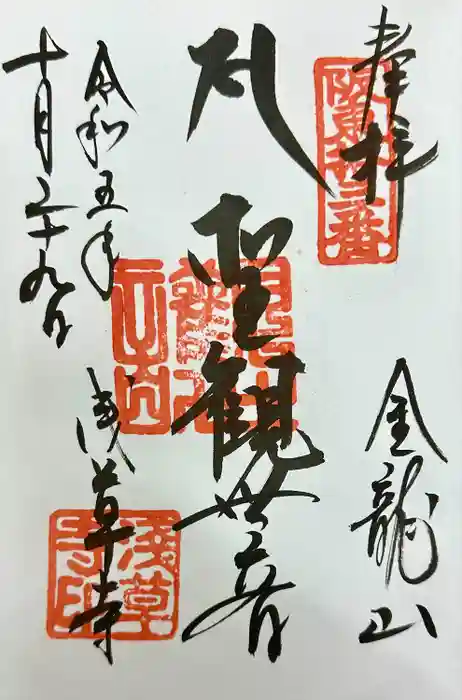 奉拝
阪東十三番
金龍山
聖観世音
令和五年
十月二十九日
浅草寺
淺草寺印